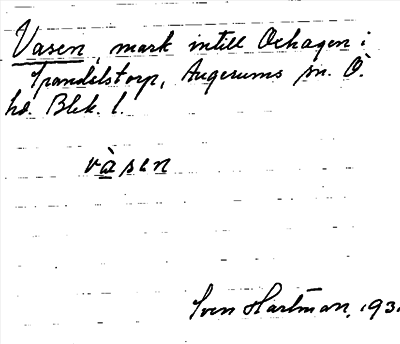 Vasen, mark intill Oxhagen i
Spandelstorp, Augerums sn. Ö.
hd. Blek. l.
và sen
Sven Hartman, 193